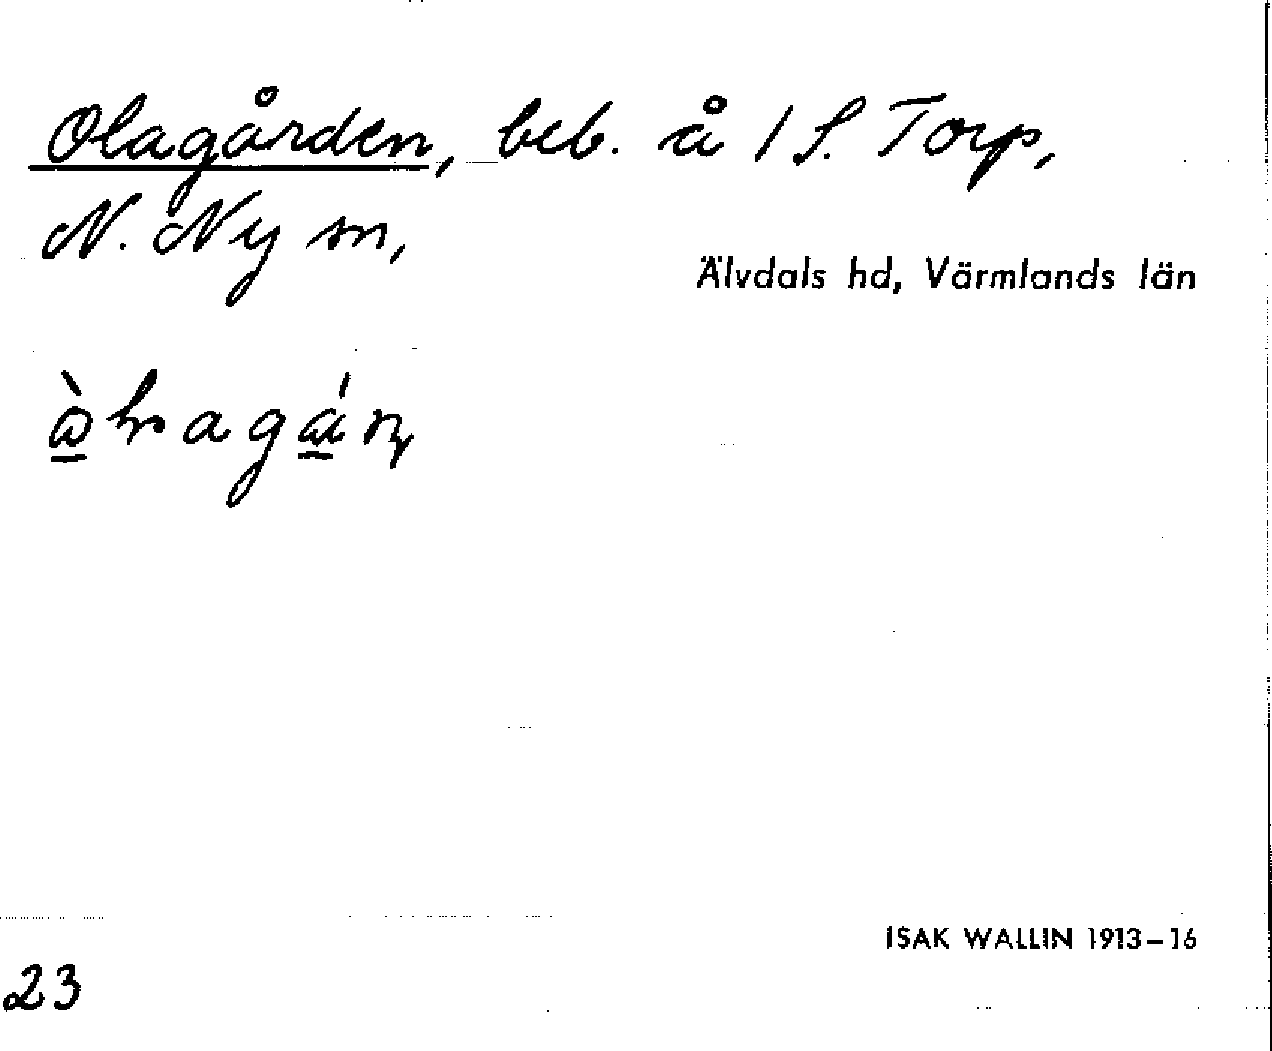 Olagården, beb. å 1 S. Torp,
N. Ny sn,
Älvdals hd, Värmlands län
ISAK WALLIN 1913–16
23